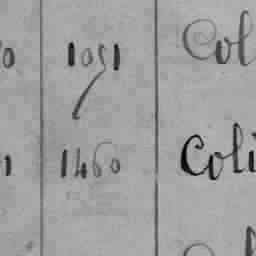 0 1051 Col
1 1460 Coli